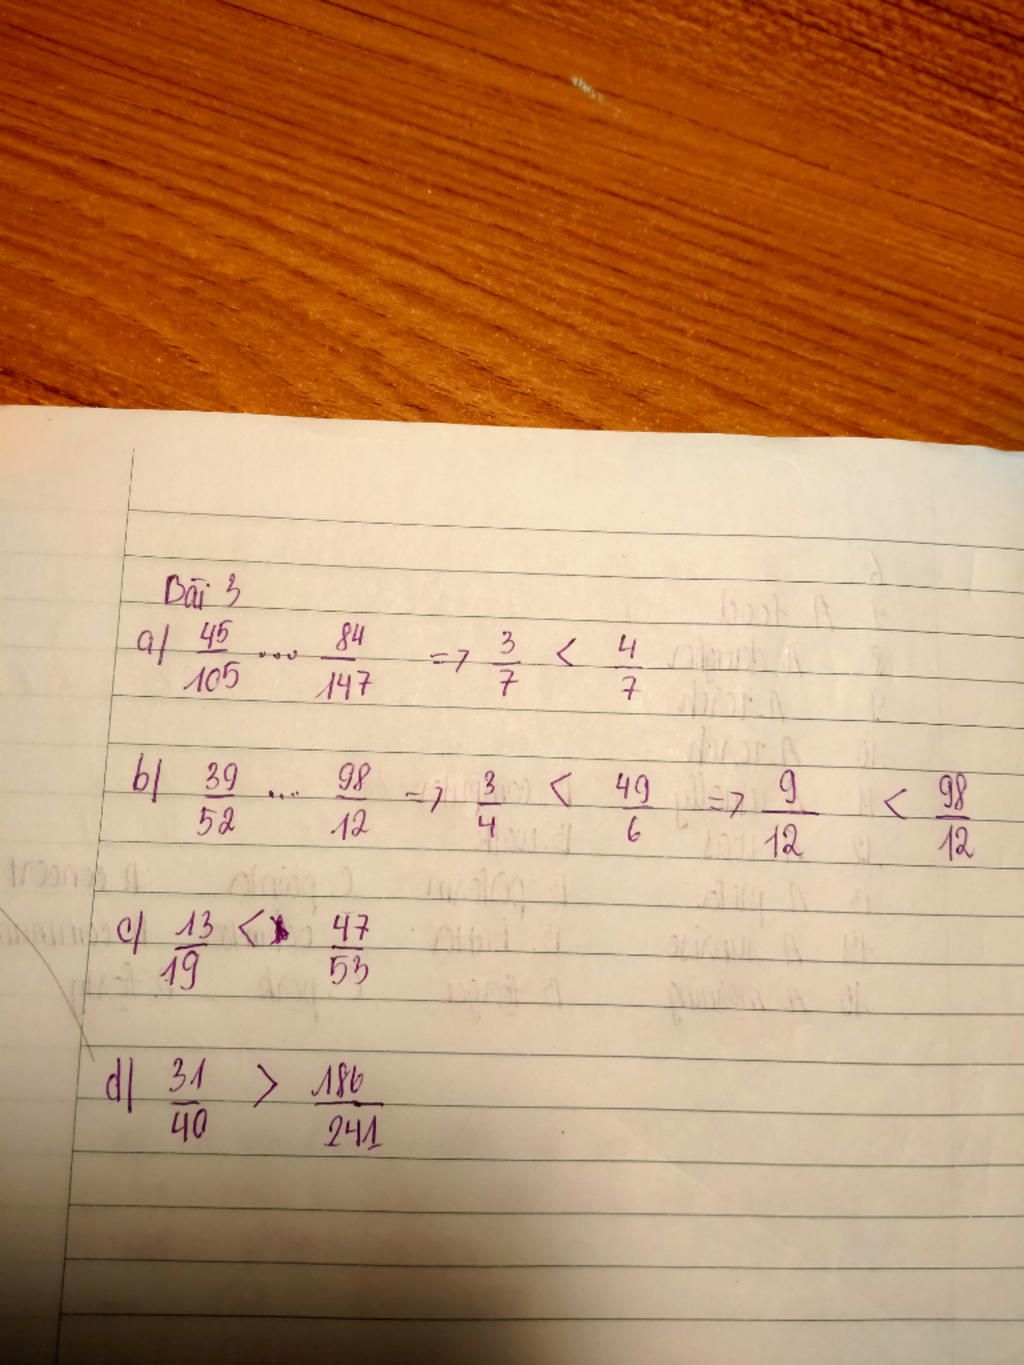 Bài 3
a) 45/105 ... 84/147 => 3/7 < 4/7
b) 39/52 ... 98/12 => 3/4 < 49/6 => 9/12 < 98/12
c) 13/19 < 47/53
d) 31/40 > 186/241